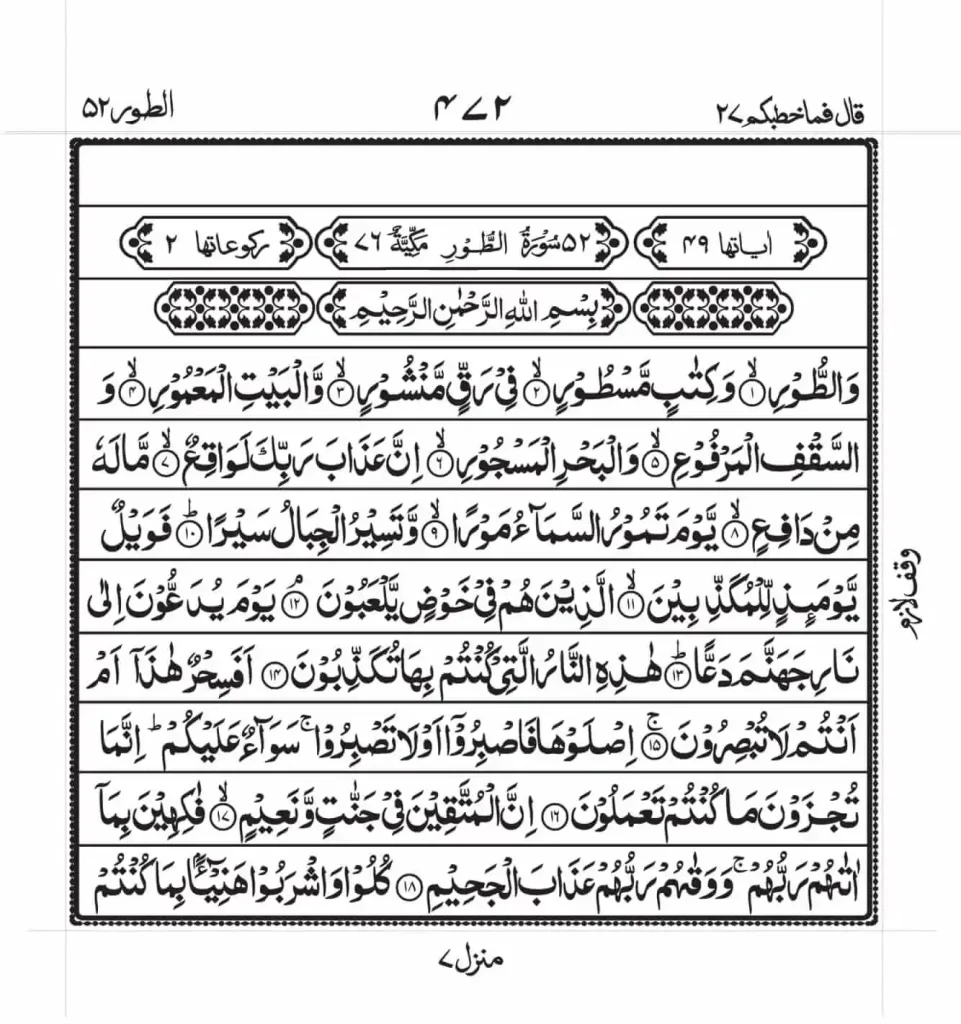 قال فما خطبكم ٢٧ ٤٧٢ الطور ٥٢
اياتها ٤٩ ٥٢ سُوْرَةُ الطُّوْرِ مَكِّيَّةٌ ٧٦ ركوعاتها ٢
بِسْمِ اللّٰهِ الرَّحْمٰنِ الرَّحِيْمِ
وَالطُّوْرِ ۙ﴿١﴾ وَكِتٰبٍ مَّسْطُوْرٍ ۙ﴿٢﴾ فِيْ رَقٍّ مَّنْشُوْرٍ ۙ﴿٣﴾ وَّالْبَيْتِ الْمَعْمُوْرِ ۙ﴿٤﴾ وَ
السَّقْفِ الْمَرْفُوْعِ ۙ﴿٥﴾ وَالْبَحْرِ الْمَسْجُوْرِ ۙ﴿٦﴾ اِنَّ عَذَابَ رَبِّكَ لَوَاقِعٌ ۙ﴿٧﴾ مَّا لَهٗ
مِنْ دَافِعٍ ۙ﴿٨﴾ يَّوْمَ تَمُوْرُ السَّمَآءُ مَوْرًا ۙ﴿٩﴾ وَّتَسِيْرُ الْجِبَالُ سَيْرًا ؕ﴿١٠﴾ فَوَيْلٌ
يَّوْمَئِذٍ لِّلْمُكَذِّبِيْنَ ۙ﴿١١﴾ الَّذِيْنَ هُمْ فِيْ خَوْضٍ يَّلْعَبُوْنَ ۘ﴿١٢﴾ يَوْمَ يُدَعُّوْنَ اِلٰى
وقف لازم
نَارِ جَهَنَّمَ دَعًّا ؕ﴿١٣﴾ هٰذِهِ النَّارُ الَّتِيْ كُنْتُمْ بِهَا تُكَذِّبُوْنَ ﴿١٤﴾ اَفَسِحْرٌ هٰذَآ اَمْ
اَنْتُمْ لَا تُبْصِرُوْنَ ۚ﴿١٥﴾ اِصْلَوْهَا فَاصْبِرُوْٓا اَوْ لَا تَصْبِرُوْا ۚ سَوَآءٌ عَلَيْكُمْ ؕ اِنَّمَا
تُجْزَوْنَ مَا كُنْتُمْ تَعْمَلُوْنَ ﴿١٦﴾ اِنَّ الْمُتَّقِيْنَ فِيْ جَنّٰتٍ وَّنَعِيْمٍ ۙ﴿١٧﴾ فٰكِهِيْنَ بِمَآ
اٰتٰىهُمْ رَبُّهُمْ ۚ وَوَقٰىهُمْ رَبُّهُمْ عَذَابَ الْجَحِيْمِ ﴿١٨﴾ كُلُوْا وَاشْرَبُوْا هَنِيْٓـًٔا بِمَا كُنْتُمْ
منزل ٧